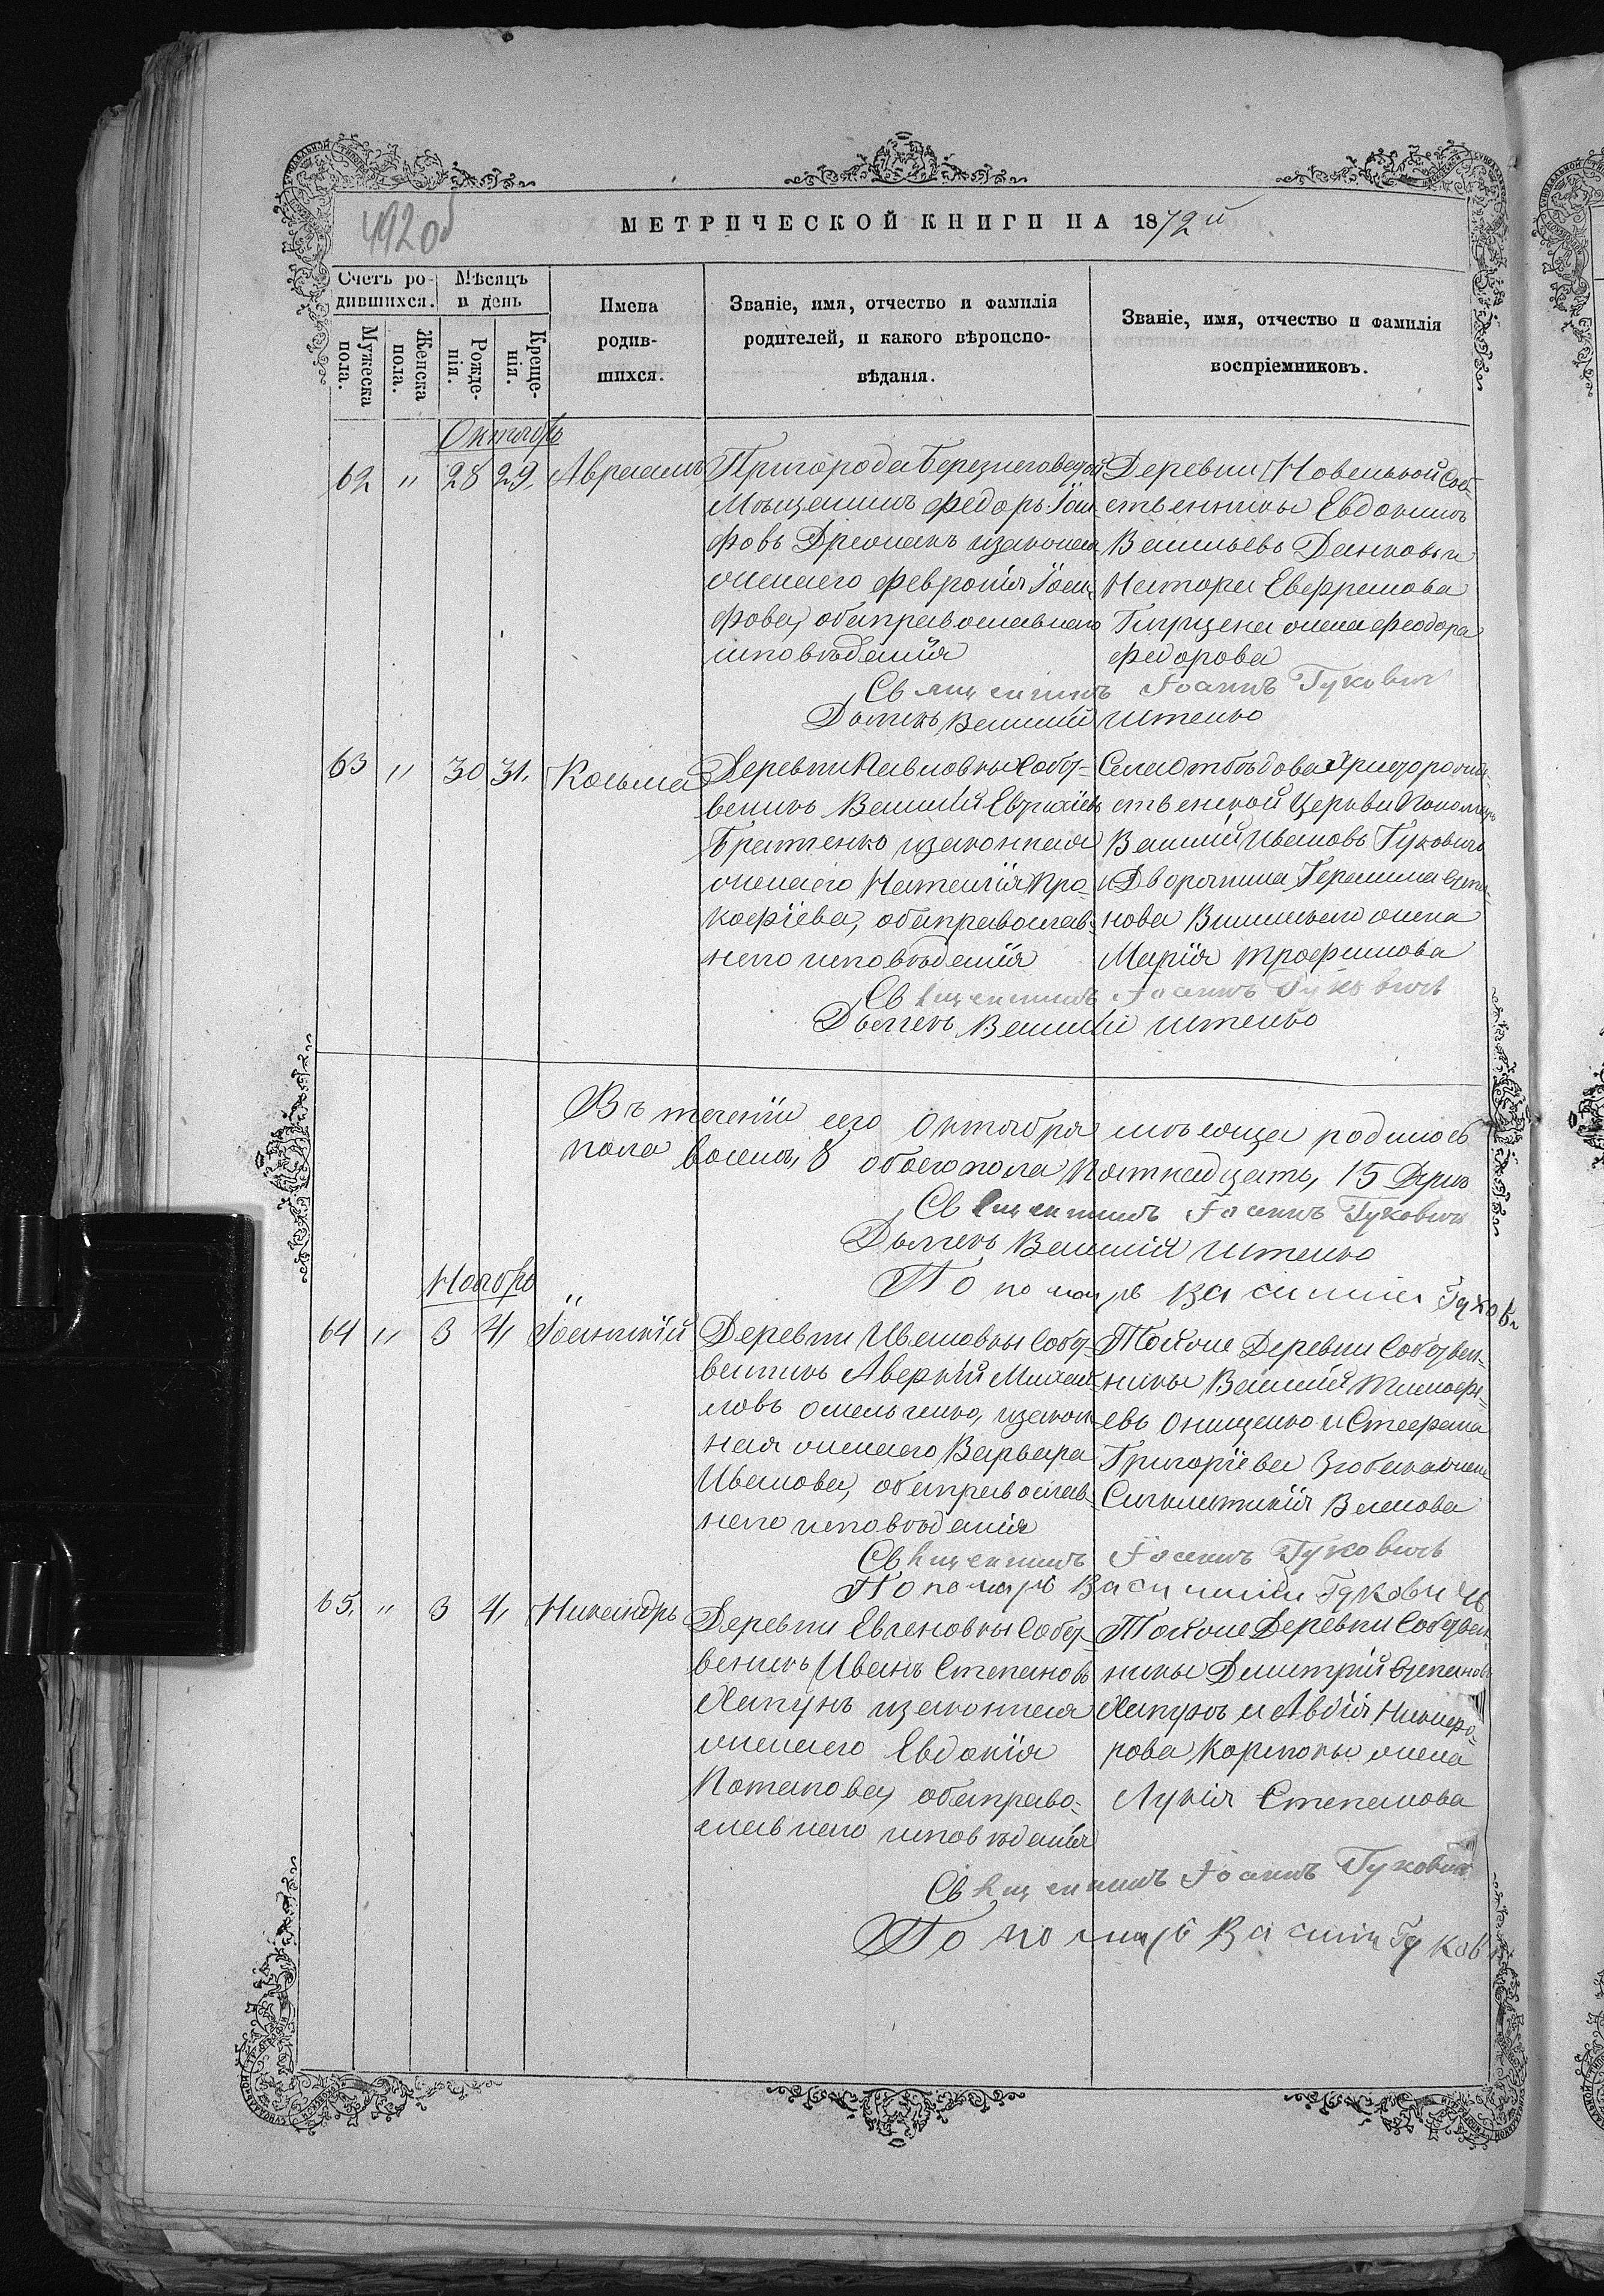 492 об
МЕТРИЧЕСКОЙ КНИГИ НА 1872й
Счетъ ро-
дившихся.
Мѣсяцъ
и день
Мужеска
пола.
Женска
пола.
Рожде-
нія.
Креще-
нія.
Имена
родив-
шихся.
Званіе, имя, отчество и фамилія
родителей, и какого вѣроиспо-
вѣданія.
Званіе, имя, отчество и фамилія
воспріемниковъ.
Октябрь
62 " 28 29, Авраамъ
Пригорода Березнеговатой
Мѣщанинъ Федоръ Іоси-
фовъ изаконная
женаего Февронія Іоси-
фова, обаправославнаго
исповѣданія
Деревни Новенькой Соб-
ственники Евдокимъ
Васильевъ Данковъ и
Нестора Евфремова
жена Феодора
Федорова
Священникъ Іоаннъ Гуковичъ
Дьячекъ Василій Итенко
63 " 30 31, Косьма
Деревни Павловки Собст-
веникъ Василій
Братченко изаконная
женаего Наталія Про-
кофіева, обаправослав-
наго исповѣданія
Села Отбѣдова Христорожде-
ственской Церкви Пономарь
Василій Ивановъ Гуковичъ
и Дворянина Герасима Степа-
нова жена
Марія Трофимова
Священникъ Іоаннъ Гуковичъ
Дьячекъ Василій Итенко
Въ теченіи сего Октября мѣсяца родилось
пола восемь, 8 обоегопола Пятнадцать, 15 Душъ
Священникъ Іоаннъ Гуковичъ
Дьячекъ Василій Итенко
Пономарь Василій Гуков
Ноябрь
64 " 3 4, Іоанникій
Деревни Ивановки Собст-
венникъ Аверкій Михай-
ловъ Омельченко, изакон-
ная женаего Варвара
Иванова, обаправослав-
наго исповѣданія
Тойже Деревни Собствен-
ники Василій Тимофе-
евъ Онищенко и Стефана
Григоріева жена
Синклитикія
Священникъ Іоаннъ Гуковичъ
Пономарь Василій Гуковичъ
65, " 3 4, Никандръ
Деревни Евгеновки Собст-
веникъ Иванъ Степановъ
Хапунъ изаконная
женаего Евдокія
Потапова, обаправо-
славнаго исповѣданія
Тойже Деревни Собствен-
ники Димитрій Степановъ
Хапунъ и Авдія Никифо-
рова жена
Лукія Степанова
Священникъ Іоаннъ Гуковичъ
Пономарь Василій Гуков